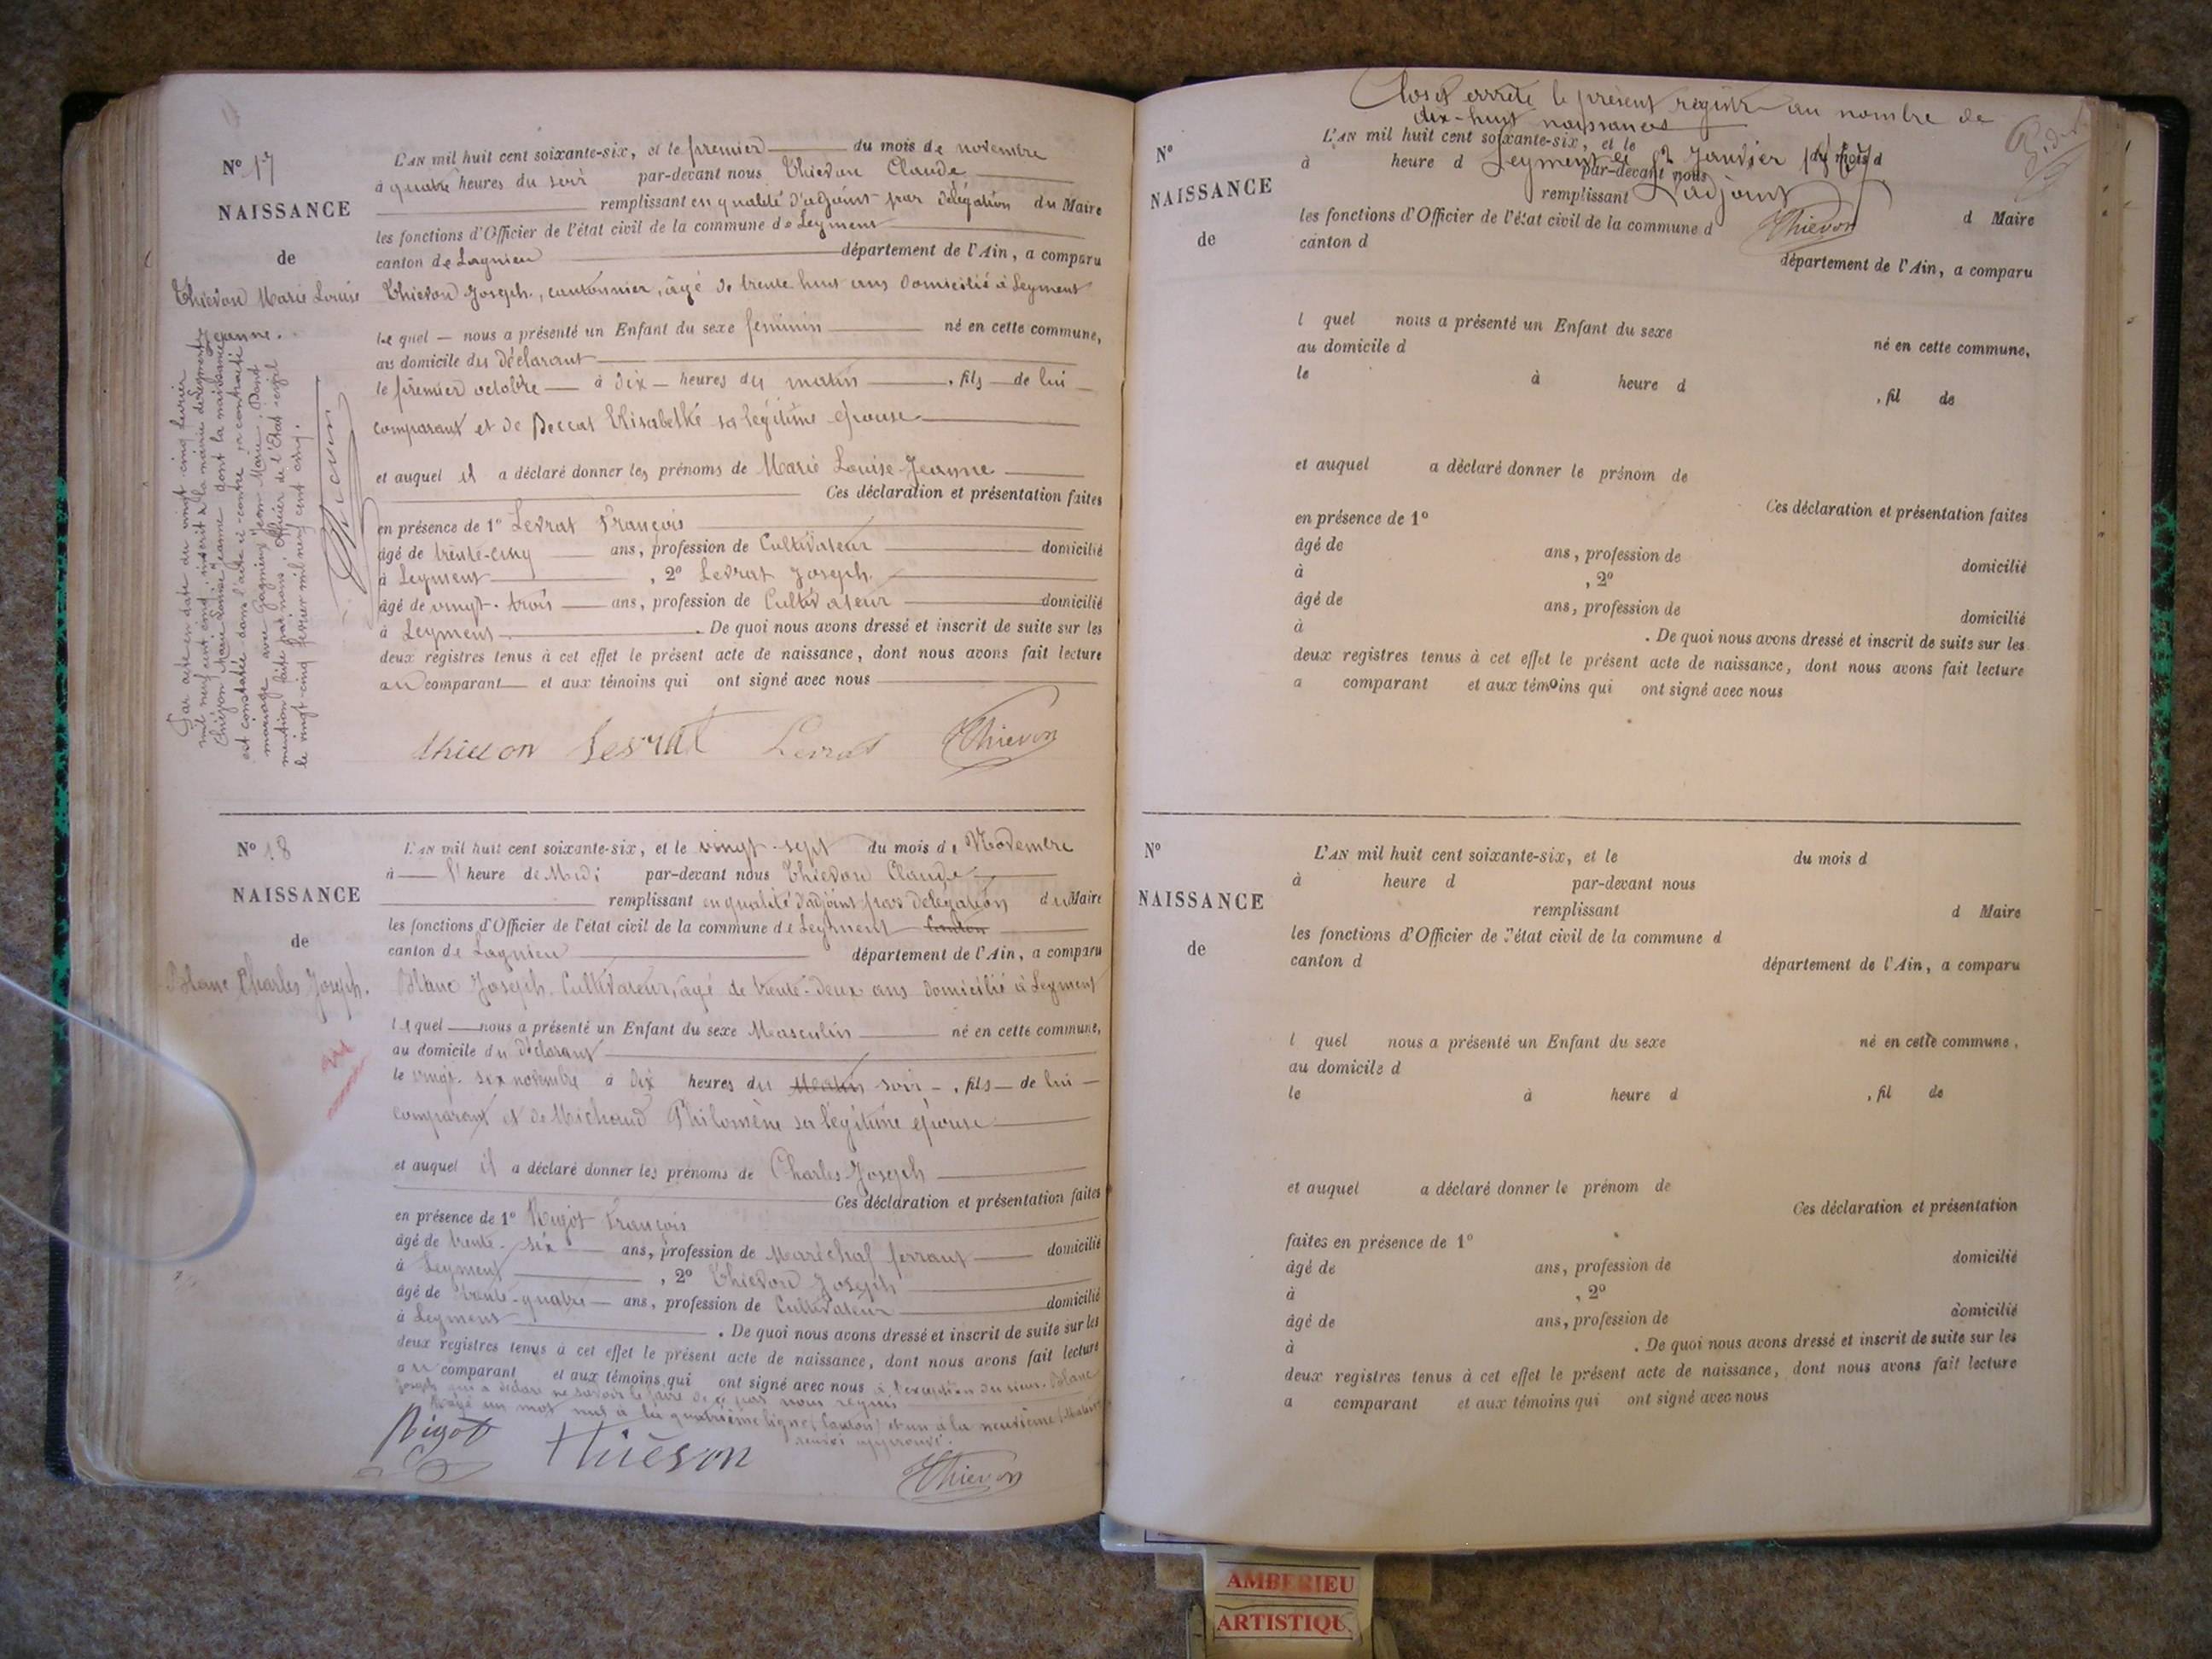 Nº 17
NAISSANCE
de
Thievon Marie Louise
Jeanne.
Par acte en date du vingt cinq février
mil neuf cent cinq, inscrit à la mairie de Leyment
Thiévon Marie Louise Jeanne dont la naissance
est constatée dans l'acte ci-contre, a contracté
mariage avec Gagnieux Jean Marie. Dont
mention faite par nous, officier de l'Etat-civil
le vingt-cinq février mil neuf cent cinq.
L'AN mil huit cent soixante-six, et le premier du mois de novembre
à quatre heures du soir par-devant nous Thievon Claude
remplissant en qualité d'adjoint par délégation du Maire
les fonctions d'Officier de l'état civil de la commune de Leyment
canton de Lagnieu département de l'Ain, a comparu
Thievon Joseph, cantonnier, âgé de trente huit ans domicilié à Leyment
lequel nous a présenté un Enfant du sexe féminin né en cette commune,
au domicile du déclarant
le premier octobre à dix heures du matin, fils de lui
comparant et de Beccat Elisabethe sa légitime épouse
et auquel il a déclaré donner les prénoms de Marie Louise Jeanne
Ces déclaration et présentation faites
en présence de 1º Levrat François
âgé de trente-cinq ans, profession de Cultivateur domicilié
à Leyment, 2º Levrat Joseph
âgé de vingt-trois ans, profession de Cultivateur domicilié
à Leyment. De quoi nous avons dressé et inscrit de suite sur les
deux registres tenus à cet effet le présent acte de naissance, dont nous avons fait lecture
au comparant et aux témoins qui ont signé avec nous
thievon Levrat Levrat Thievon
Nº 18
NAISSANCE
de
Blanc Charles Joseph.
L'AN mil huit cent soixante-six, et le vingt-sept du mois de Novembre
à l'heure de Midi par-devant nous Thievon Claude
remplissant en qualité d'adjoint par délégation du Maire
les fonctions d'Officier de l'état civil de la commune de Leyment Canton
canton de Lagnieu département de l'Ain, a comparu
Blanc Joseph, Cultivateur, âgé de trente-deux ans domicilié à Leyment
lequel nous a présenté un Enfant du sexe Masculin né en cette commune,
au domicile du déclarant
le vingt-six novembre à dix heures du Matin soir, fils de lui
comparant et de Michaud Philomène sa légitime épouse
et auquel il a déclaré donner les prénoms de Charles Joseph
Ces déclaration et présentation faites
en présence de 1º Rigot François
âgé de trente-six ans, profession de Maréchal ferrant domicilié
à Leyment, 2º Thievon Joseph
âgé de trente-quatre ans, profession de Cultivateur domicilié
à Leyment. De quoi nous avons dressé et inscrit de suite sur les
deux registres tenus à cet effet le présent acte de naissance, dont nous avons fait lecture
au comparant et aux témoins qui ont signé avec nous à l'exception du sieur Blanc
Joseph qui a déclaré ne savoir le faire de ce par nous requis
Rayé un mot nul à la quatrième ligne (Canton) et un à la neuvième (Matin)
renvoi approuvé.
Rigot Thiévon Thievon
Clos et arrêté le présent registre au nombre de
dix-huit naissances
Leyment le Janvier
L'adjoint
Thievon
Nº
NAISSANCE
de
L'AN mil huit cent soixante-six, et le du mois d
à heure d par-devant nous
remplissant d Maire
les fonctions d'Officier de l'état civil de la commune d
canton d département de l'Ain, a comparu
l quel nous a présenté un Enfant du sexe né en cette commune,
au domicile d
le à heure d , fil de
et auquel a déclaré donner le prénom de
Ces déclaration et présentation faites
en présence de 1º
âgé de ans, profession de domicilié
à , 2º
âgé de ans, profession de domicilié
à . De quoi nous avons dressé et inscrit de suite sur les
deux registres tenus à cet effet le présent acte de naissance, dont nous avons fait lecture
a comparant et aux témoins qui ont signé avec nous
Nº
NAISSANCE
de
L'AN mil huit cent soixante-six, et le du mois d
à heure d par-devant nous
remplissant d Maire
les fonctions d'Officier de l'état civil de la commune d
canton d département de l'Ain, a comparu
l quel nous a présenté un Enfant du sexe né en cette commune,
au domicile d
le à heure d , fil de
et auquel a déclaré donner le prénom de
Ces déclaration et présentation
faites en présence de 1º
âgé de ans, profession de domicilié
à , 2º
âgé de ans, profession de domicilié
à . De quoi nous avons dressé et inscrit de suite sur les
deux registres tenus à cet effet le présent acte de naissance, dont nous avons fait lecture
a comparant et aux témoins qui ont signé avec nous
AMBERIEU
ARTISTIQU